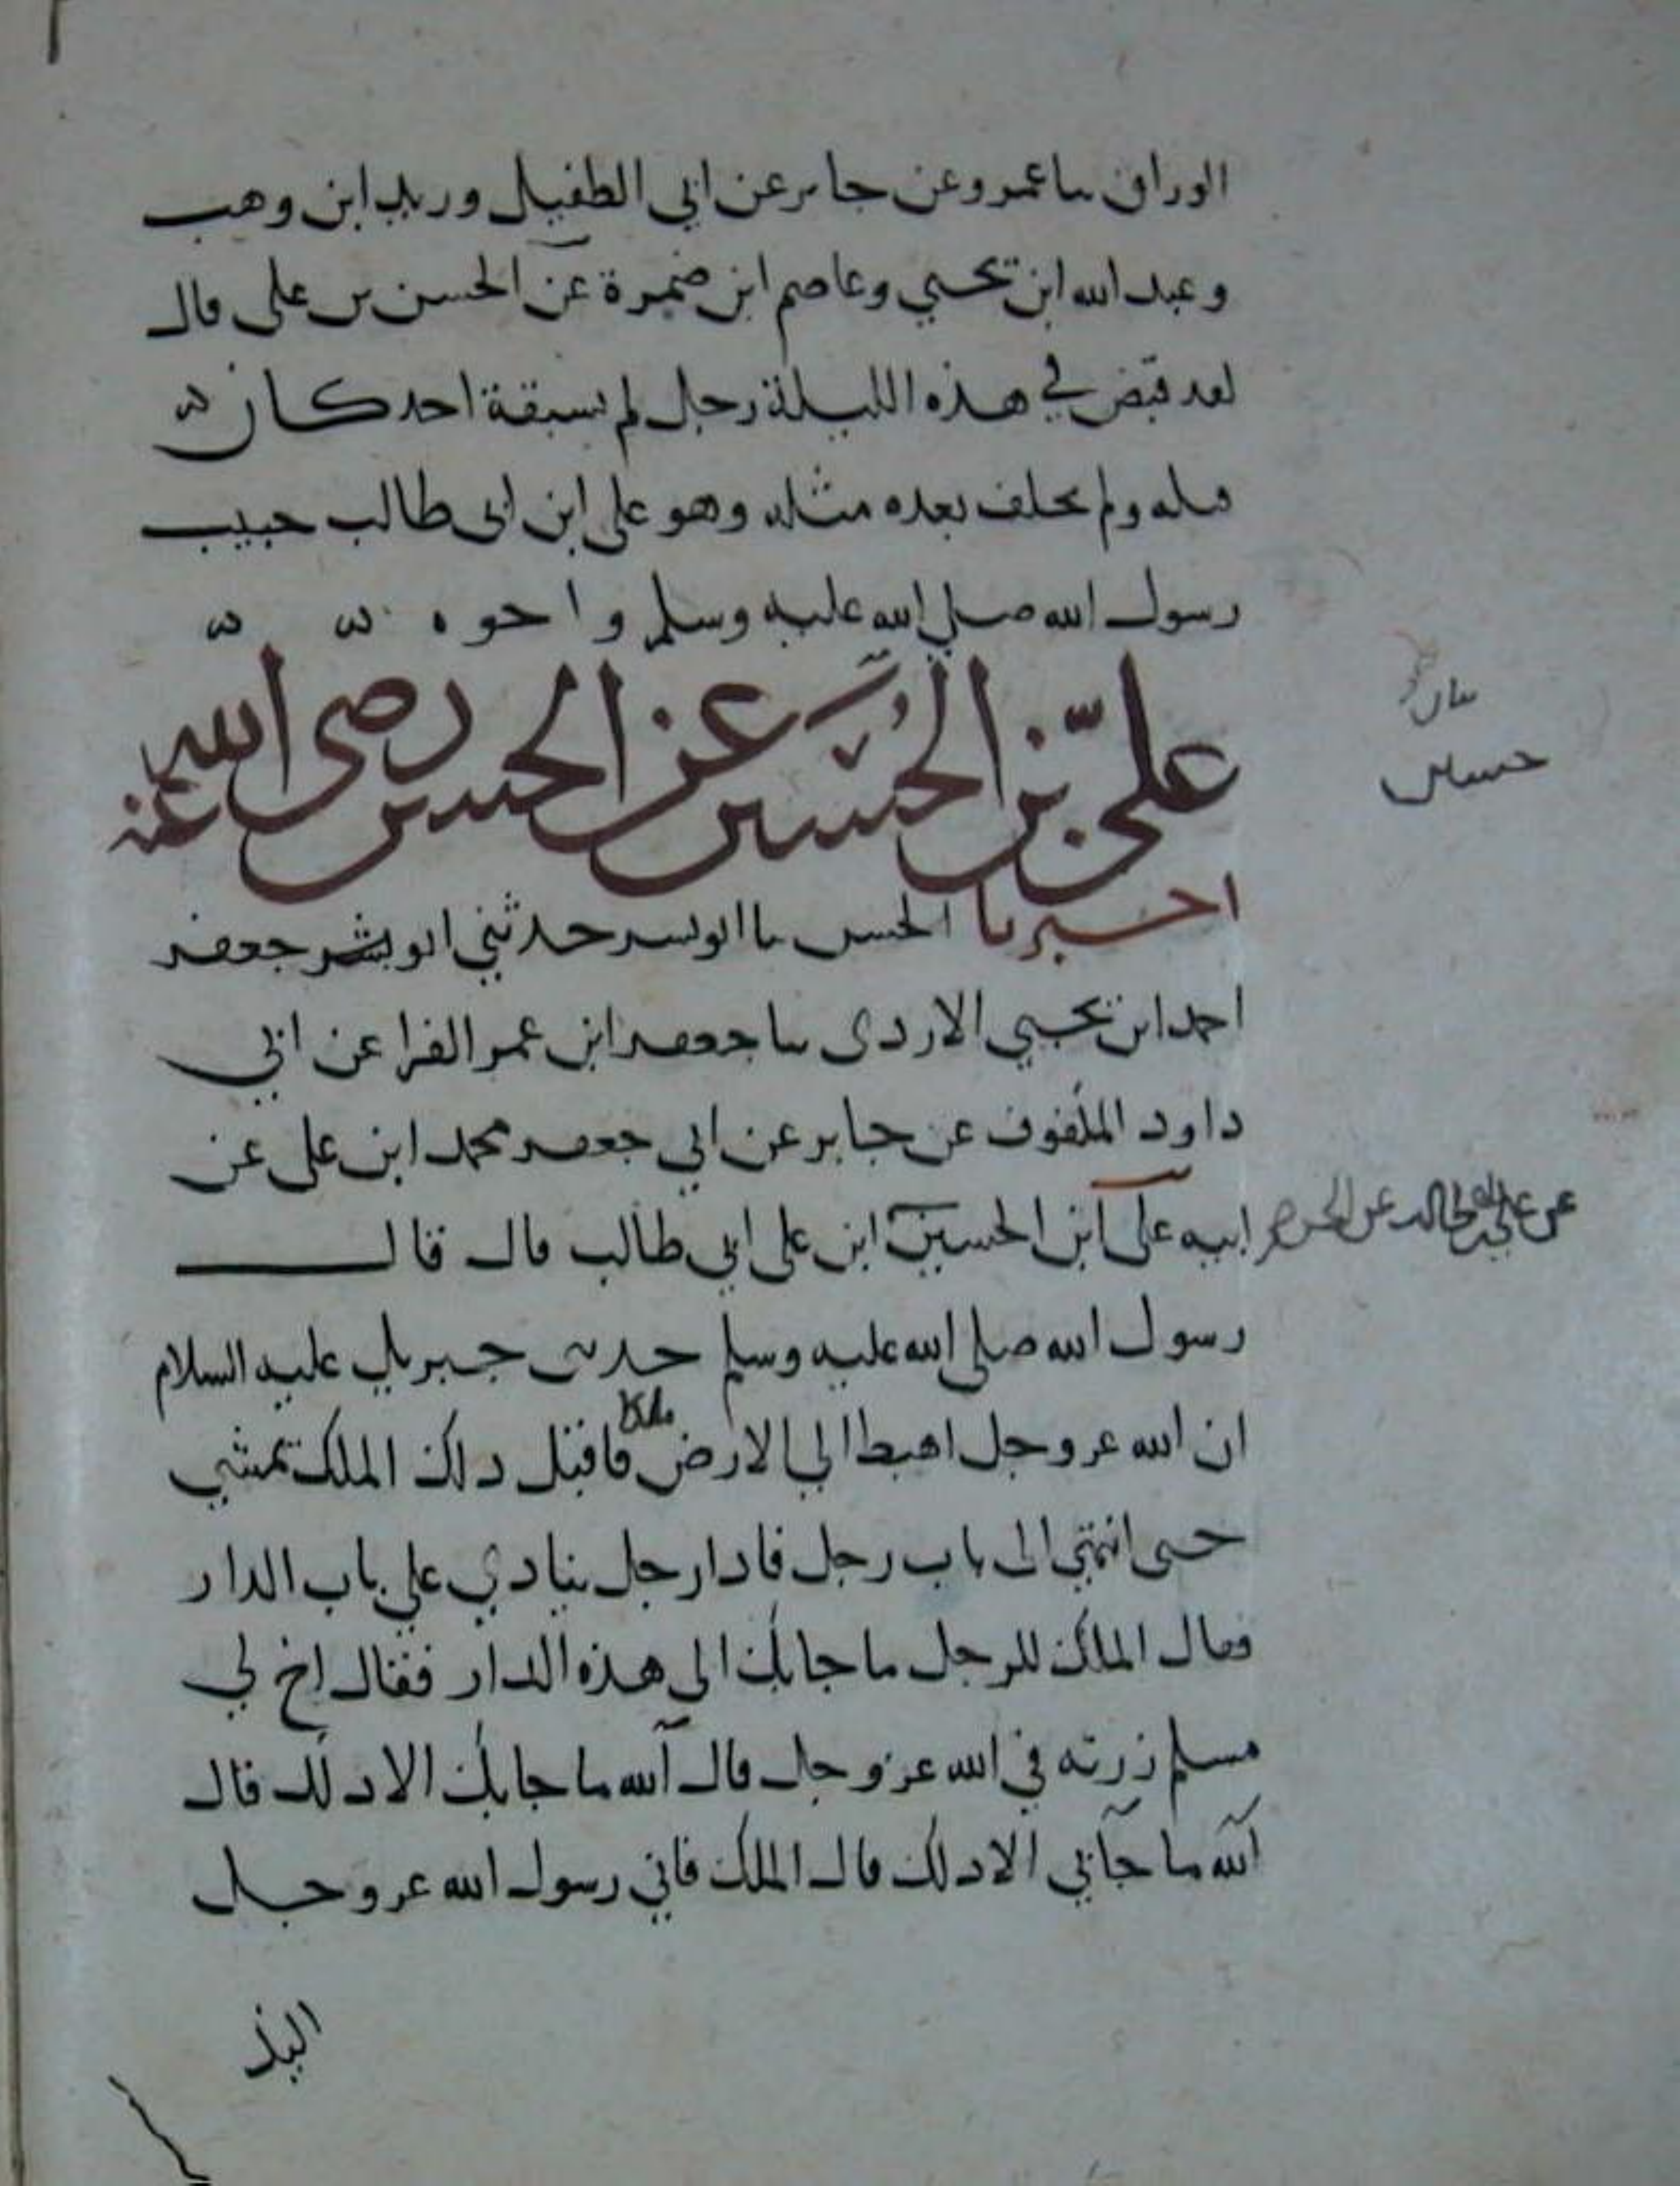 الوراق ىىا عمرو عن جابر عن ابي الطفيل وريد ابن وهب
وعبد الله ابن يحيي وعاصم ابن ضميرة عن الحسن بن على قال
لقد قبض في هذه الليلة رجل لم يسبقة احد كان
قبله ولم يخلف بعده مثله وهو على ابن ابى طالب حبيب
رسول الله صلي الله عليه وسلم واخوه
علي بن الحسين عن الحسن رضى الله عنه
اخبرنا الحسن ىا ابو بشر حدثني ابو بشر جعفر
احمد ابن يحيي الاردى ىىا جعفر ابن عمر الفرا عن ابي
داود الملفوف عن جابر عن ابي جعفر محمد ابن على عن
ابيه على ابن الحسين ابن على ابي طالب قال قال
رسول الله صلي الله عليه وسلم حدثنى جبريل عليه السلام
ان الله عز وجل اهبط الي الارض ملكا فاقبل دلك الملك يمشي
حتى انتهي الى باب رجل فادا رجل ينادي علي باب الدار
فقال الملك للرجل ما جا بك الى هذه الدار فقال اخ لي
مسلم زرته في الله عز وجل قال آلله ما جا بك الا دلك قال
آلله ما جآبي الا دلك قال الملك فاني رسول الله عز وجل